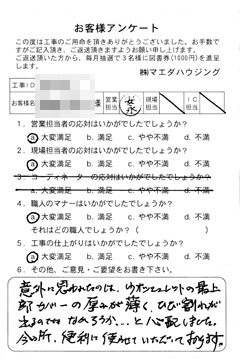 お客様アンケート
この度は工事のご用命を頂きありがとうございました。お手数で
すがご記入頂き、ご返送頂きますようお願い申し上げます。
ご返送頂いた方から、毎月抽選で3名様に図書券(1000円)を進呈
します。
㈱マエダハウジング
工事ID
お客様名
様
営業担当
安永
現場担当
IC担当
1. 営業担当者の応対はいかがでしたでしょうか?
a. 大変満足 b. 満足 c. やや不満 d. 不満
2. 現場担当者の応対はいかがでしたでしょうか?
a. 大変満足 b. 満足 c. やや不満 d. 不満
3. コーディネーターの応対はいかがでしたでしょうか?
a. 大変満足 b. 満足 c. やや不満 d. 不満
4. 職人のマナーはいかがでしたでしょうか?
a. 大変満足 b. 満足 c. やや不満 d. 不満
それはどの職人でしょうか? ( )
5. 工事の仕上がりはいかがでしたでしょうか?
a. 大変満足 b. 満足 c. やや不満 d. 不満
6. その他、ご意見・ご要望をお書き下さい。
意外に思われたのは、ウォシュレットの最上
部カバーの厚みが薄く、ひび割れが
生ずるのではなかろうか、…と心配しました。
今の所、便利に使わせていただいております。